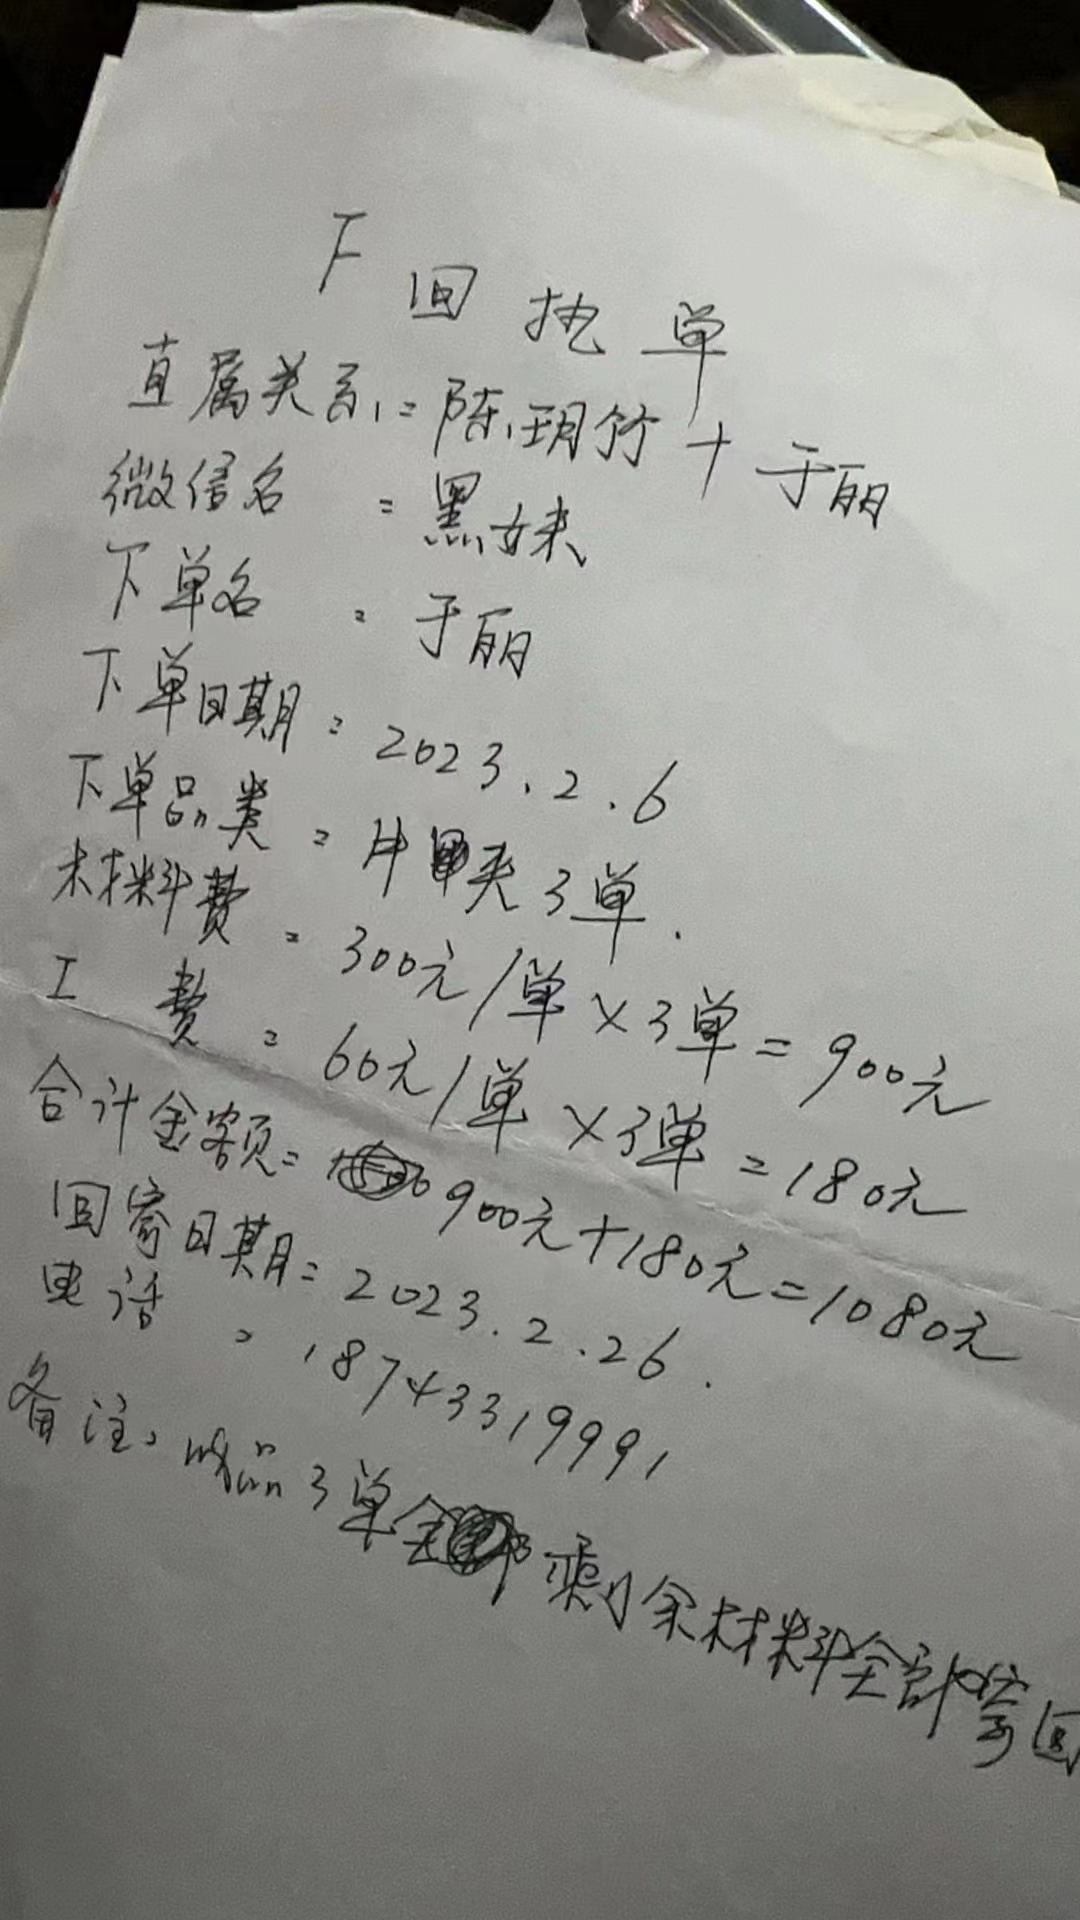 下
回执单
直属关系:陈玥竹+于丽
微信名:黑妹
下单名:于丽
下单日期:2023.2.6
下单品类:片夹3单.
材料费:300元/单×3单=900元
工费:60元/单×3单=180元
合计金额:900元+180元=1080元
回寄日期:2023.2.26.
电话:18743319991
备注:成品3单全部 剩余材料全部寄回